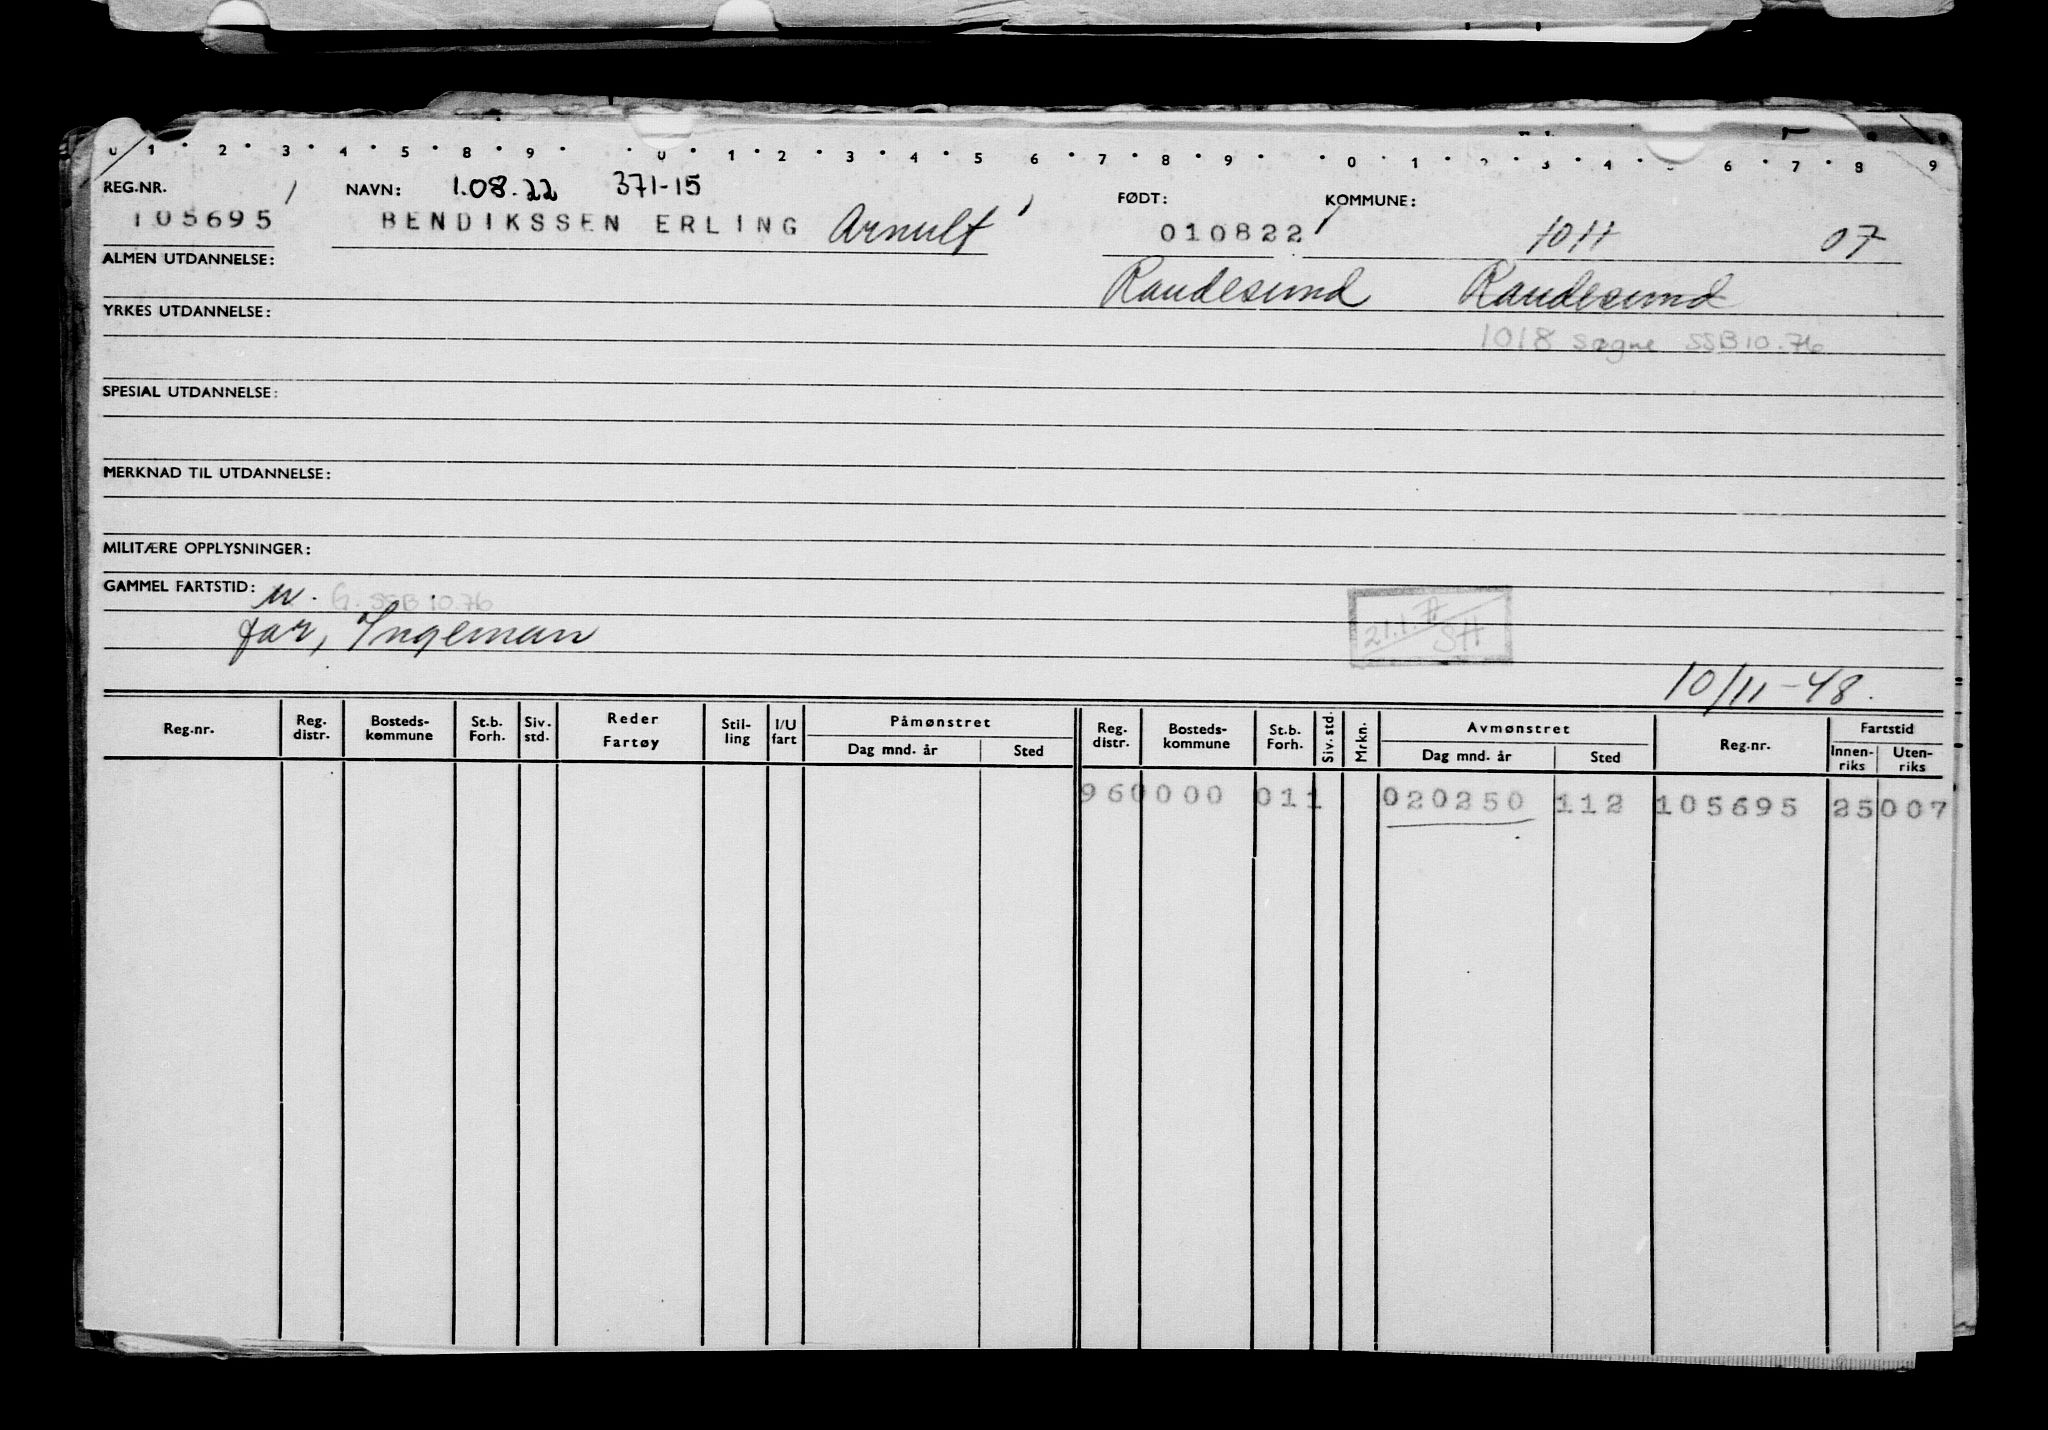 0 1 2 3 4 5 8 9 0 1 2 3 4 5 6 7 8 9 0 1 2 3 4 5 6 7 8 9
REG.NR. NAVN: 1.08.22 371-15 FØDT: KOMMUNE:
105695 BENDIKSSEN ERLING Arnulf 010822 1011 07
ALMEN UTDANNELSE: Randesund Randesund
YRKES UTDANNELSE:
1018 Søgne SSB 10.76
SPESIAL UTDANNELSE:
MERKNAD TIL UTDANNELSE:
MILITÆRE OPPLYSNINGER:
GAMMEL FARTSTID: G. SSB 10.76
far, Ingeman
SH
10/11-48.
Reg.nr. Reg. distr. Bosteds-kommune St.b. Forh. Siv. std. Reder Fartøy Stil-ling I/U fart Påmønstret Dag mnd. år Sted Reg. distr. Bosteds-kommune St.b. Forh. Siv. std. Mrkn. Avmønstret Dag mnd. år Sted Reg.nr. Fartstid Innen-riks Uten-riks
960000 011 020250 112 105695 25007